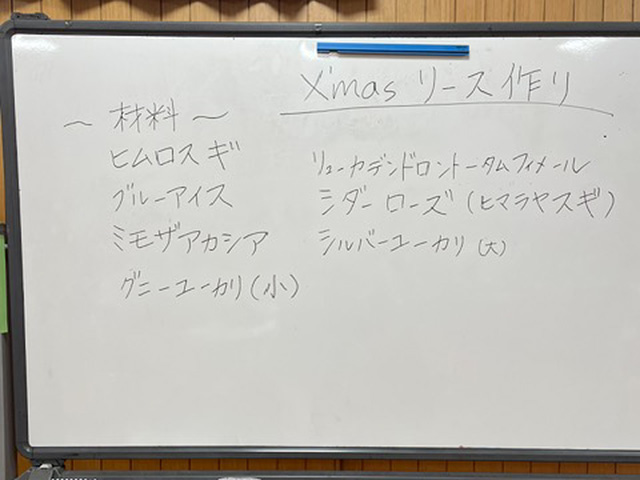 X'mas リース作り
～ 材料 ～
ヒムロスギ
ブルーアイス
ミモザアカシア
グニーユーカリ(小)
リューカデンドロントータムフィメール
シダーローズ(ヒマラヤスギ)
シルバーユーカリ(大)